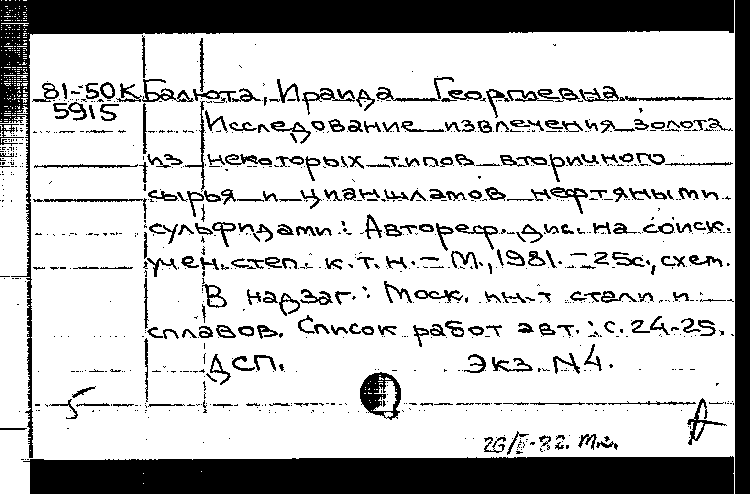 81-50К Балюта, Ираида Георгиевна.
5915
Исследование извлечения золота
из некоторых типов вторичного
сырья и цианшламов нефтяными
сульфидами: Автореф. дис. на соиск.
учен. степ. к.т.н. - М., 1981. - 25с., схем.
В надзаг.: Моск. ин-т стали и
сплавов. Список работ авт.: с. 24-25.
ДСП. Экз. N4.
5